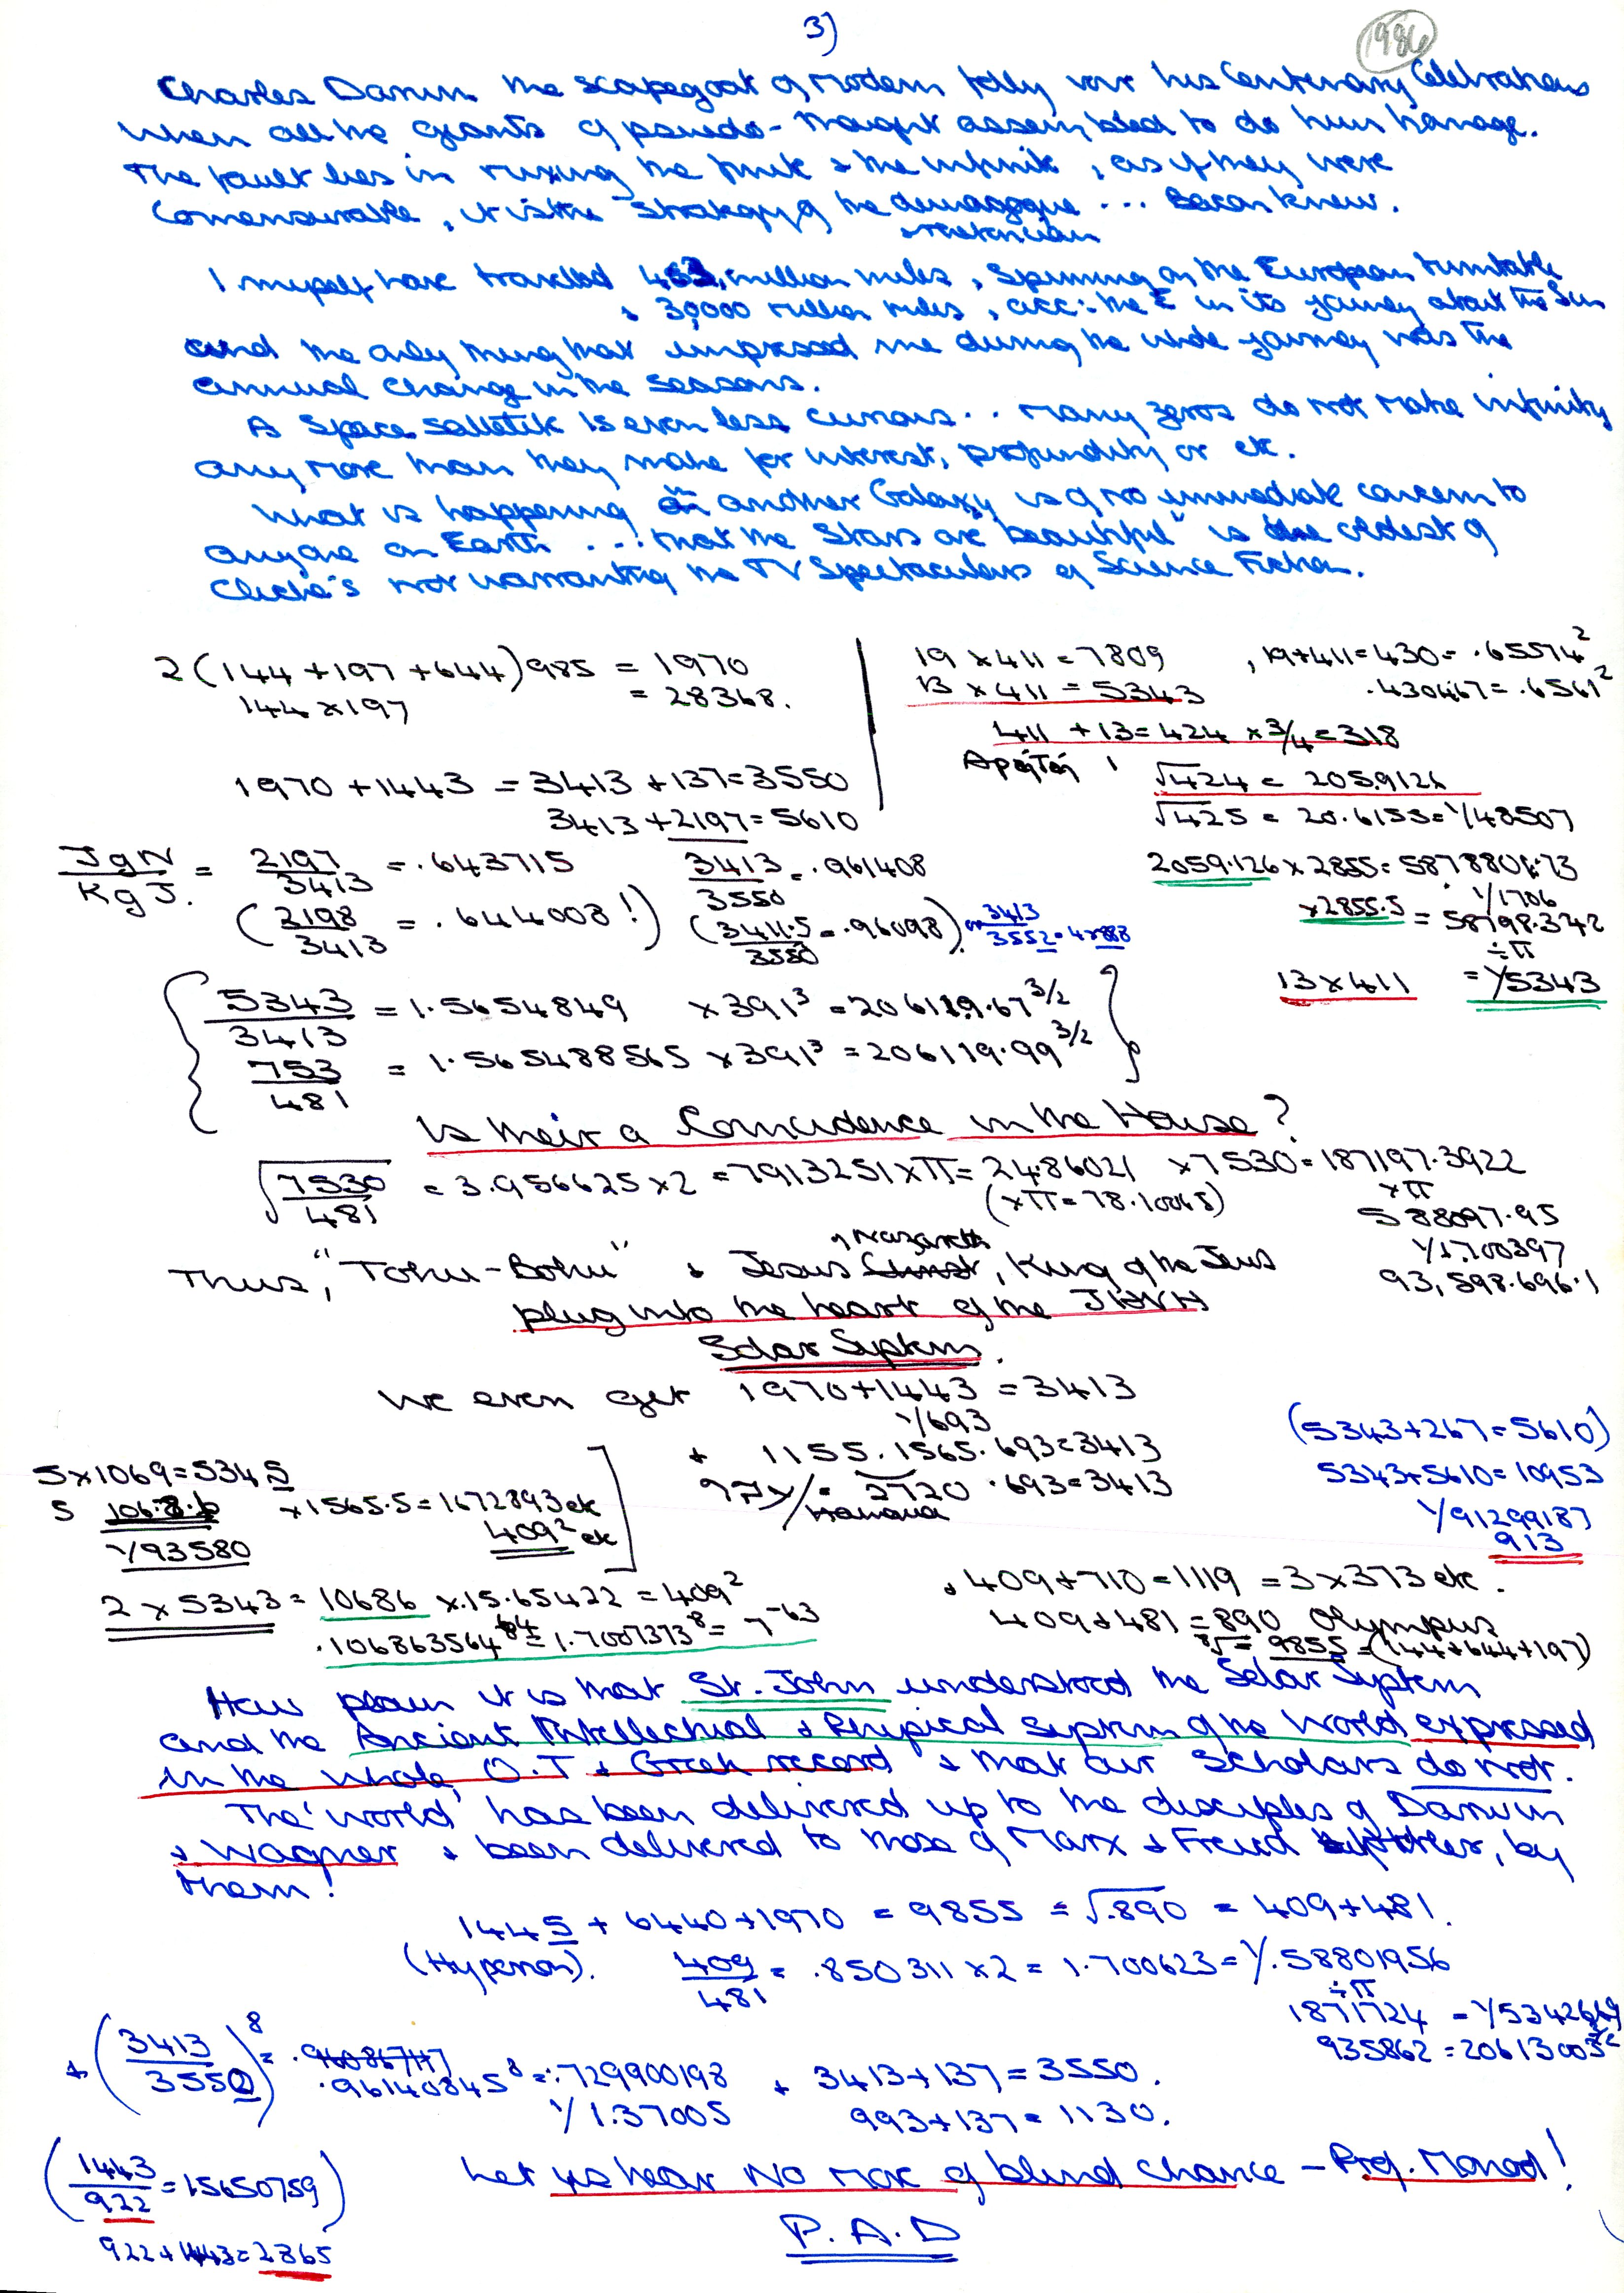 3)
1986
Charles Darwin the scapegoat of modern folly vour his Centenary Celebrations
when all the giants of pseudo-thought assembled to do him homage.
The fault lies in mixing the finite & the infinite, as if they were
Comensurable, it is the strategy of the demagogue ... Bacon knew.
& rhetorician
I myself have travelled million miles, Spinning on the European turntable
& 30,000 million miles, acc: the E in its journey about the Sun
and the only thing that impressed me during the whole journey was the
annual change in the seasons.
A Space satletite is even less curious .. many zeros do not make infinity
any more than they make for interest, profundity or etc.
What is happening in another Galaxy is of no immediate concern to
anyone on Earth ... that the Stars are "beautiful" is the oldest of
Cliché's not warranting the TV Spectaculars of Science Fiction.
2(144+197+644)985 = 1970
144×197 = 28368.
1970+1443 = 3413+137=3550
3413+2197=5610
19×411=7809 , 19+411=430= .65574²
13×411=5343 .430467=.6561²
411+13=424×3/4=318
√424 = 2059126
√425 = 20.6155=1/48507
JgN/KgJ. = 2197/3413 = .643715 3413/3550 = .961408
(2198/3413 = .644008!) (3411.5/3550 = .96098). or 3413/3552=4×888
2059.126×2855=5878804.73
1/1706
×2855.5 = 58798.342
÷π
13×411 = 1/5343
5343/3413 = 1.5654849 ×391³ = 206119.67^3/2
753/481 = 1.565488565 ×391³ = 206119.99^3/2
Is their a Coincidence in the House?
√7530/481 = 3.956625×2 = 7913251×π = 2486021 ×7530=187197.3922
(×π=78.10065) ×π
588097.95
1/1.700397
93,598.696.1
Nazareth
Thus, "Tohu-Bohu" & Jesus Christ, King of the Jews
plug into the heart of the JHVH
Solar System.
We even get 1970+1443 = 3413
1/693
+ 1155.1565.693=3413
2720 .693=3413
(5343+267=5610)
5343+5610=10953
1/91299187
913
5×1069=5345
5 1068.6 ×1565.5=1672893 etc
1/93580 409² etc
2×5343=10686×.15.65422=409²
.106863564^64=1.7007373^8=7^-63
& 409+710=1119=3×373 etc.
409+481=890 Olympus
⁸√= 9855=(144+644+197)
How plain it is that St. John understood the Solar System
and the Ancient Intellectual & Physical System of the World expressed
in the whole, O.T & Greek record & that our Scholars do not.
The 'world' has been delivered up to the disciples of Darwin
& Wagner & been delivered to those of Marx & Freud & Hitler, by
them!
1445+6440+1970 = 9855 = √.890 = 409+481.
(Hyperion). 409/481 = .850311×2 = 1.700623=1/.58801956
÷π
1871724 =
935862 =
+ (3413/3550)^8 = .96140845^8=.729900198 & 3413+137=3550.
1/1.37005 993+137=1130.
(1443/922 = 1.5650759)
922+1443=2365
Let us hear No more of blind chance – Prof. Monod!
P.A.D